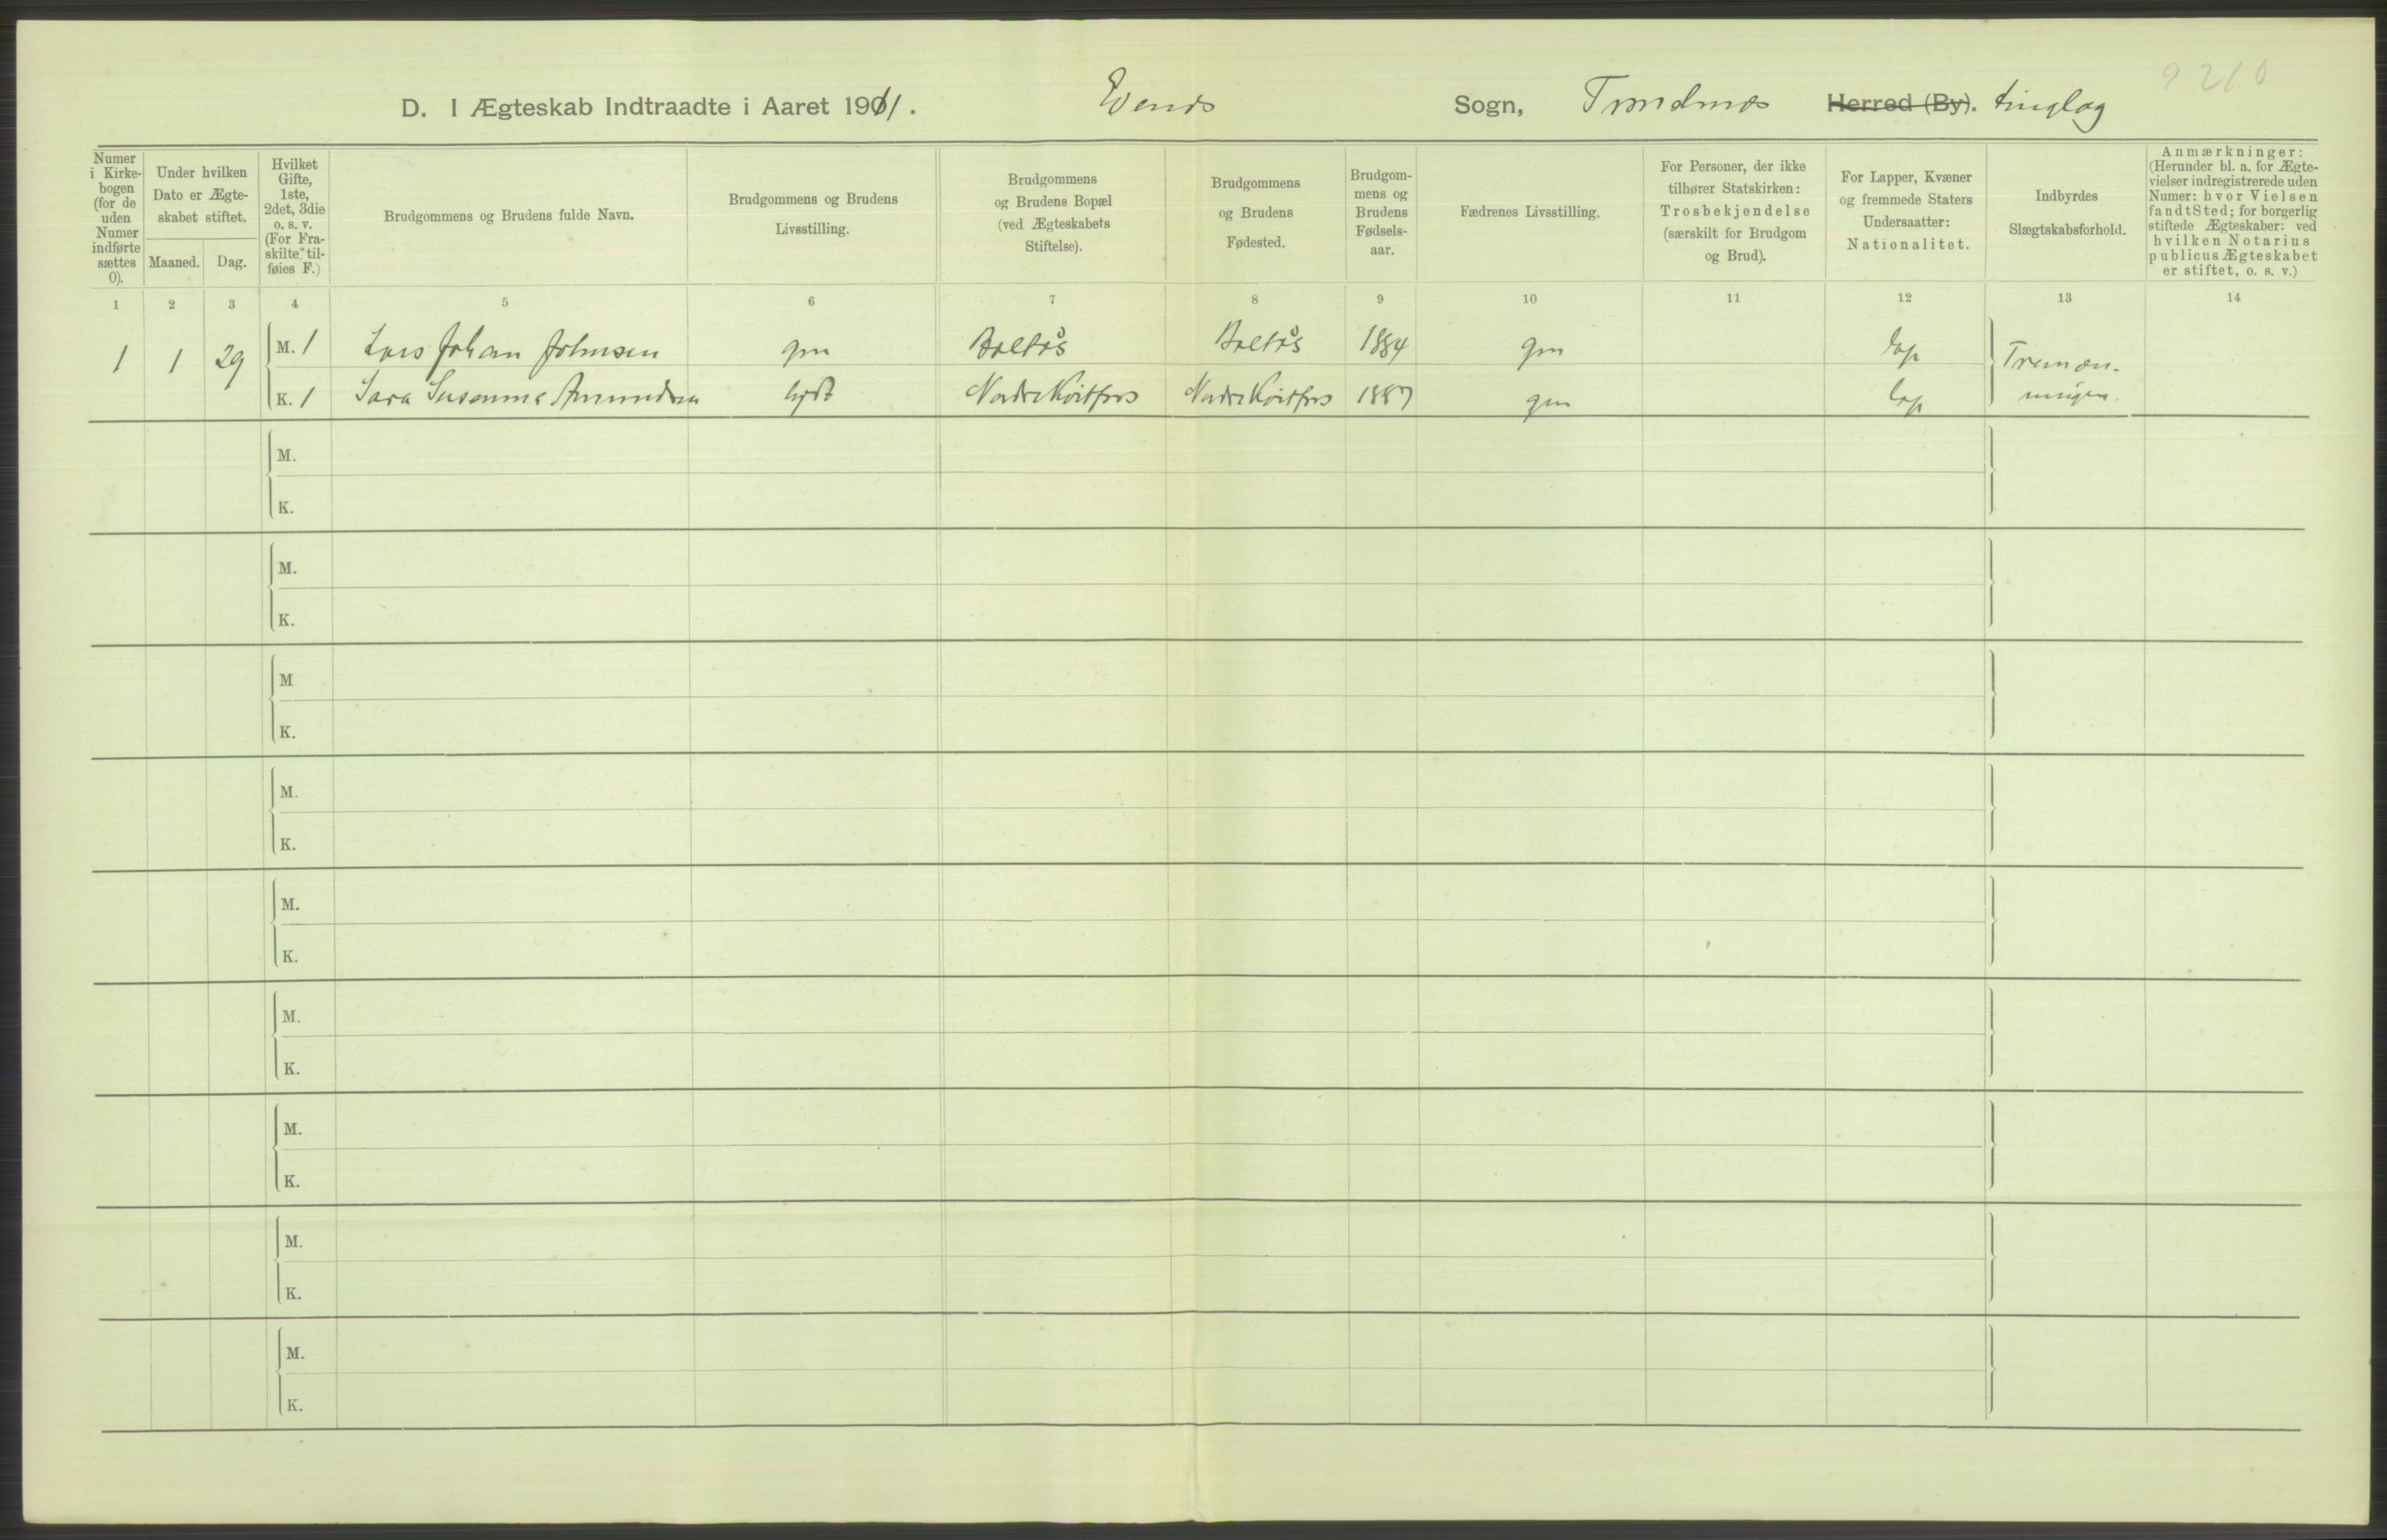 9210
D. I Ægteskab Indtraadte i Aaret 1911. Evenes Sogn, Trondenes Herred (By). tinglag
Numer i Kirkebogen (for de uden Numer indførte sættes 0).
Under hvilken Dato er Ægteskabet stiftet.
Maaned. Dag.
Hvilket Gifte, 1ste, 2det, 3die o. s. v. (For Fraskilte tilføies F.)
Brudgommens og Brudens fulde Navn.
Brudgommens og Brudens Livsstilling.
Brudgommens og Brudens Bopæl (ved Ægteskabets Stiftelse).
Brudgommens og Brudens Fødested.
Brudgommens og Brudens Fødselsaar.
Fædrenes Livsstilling.
For Personer, der ikke tilhører Statskirken: Trosbekjendelse (særskilt for Brudgom og Brud).
For Lapper, Kvæner og fremmede Staters Undersaatter: Nationalitet.
Indbyrdes Slægtskabsforhold.
Anmærkninger: (Herunder bl. a. for Ægtevielser indregistrerede uden Numer: hvor Vielsen fandt Sted; for borgerlig stiftede Ægteskaber: ved hvilken Notarius publicus Ægteskabet er stiftet, o. s. v.)
1 2 3 4 5 6 7 8 9 10 11 12 13 14
1 1 29 M. 1 Lars Johan Johnsen gm Boltås Boltås 1884 gm lap Tremæn-
K. 1 Sara Susanna Amundsen Nordre Kvitfors Nordre Kvitfors 1887 gm lap ningen.
M.
K.
M.
K.
M
K.
M.
K.
M.
K.
M.
K.
M.
K.
M.
K.
M.
K.